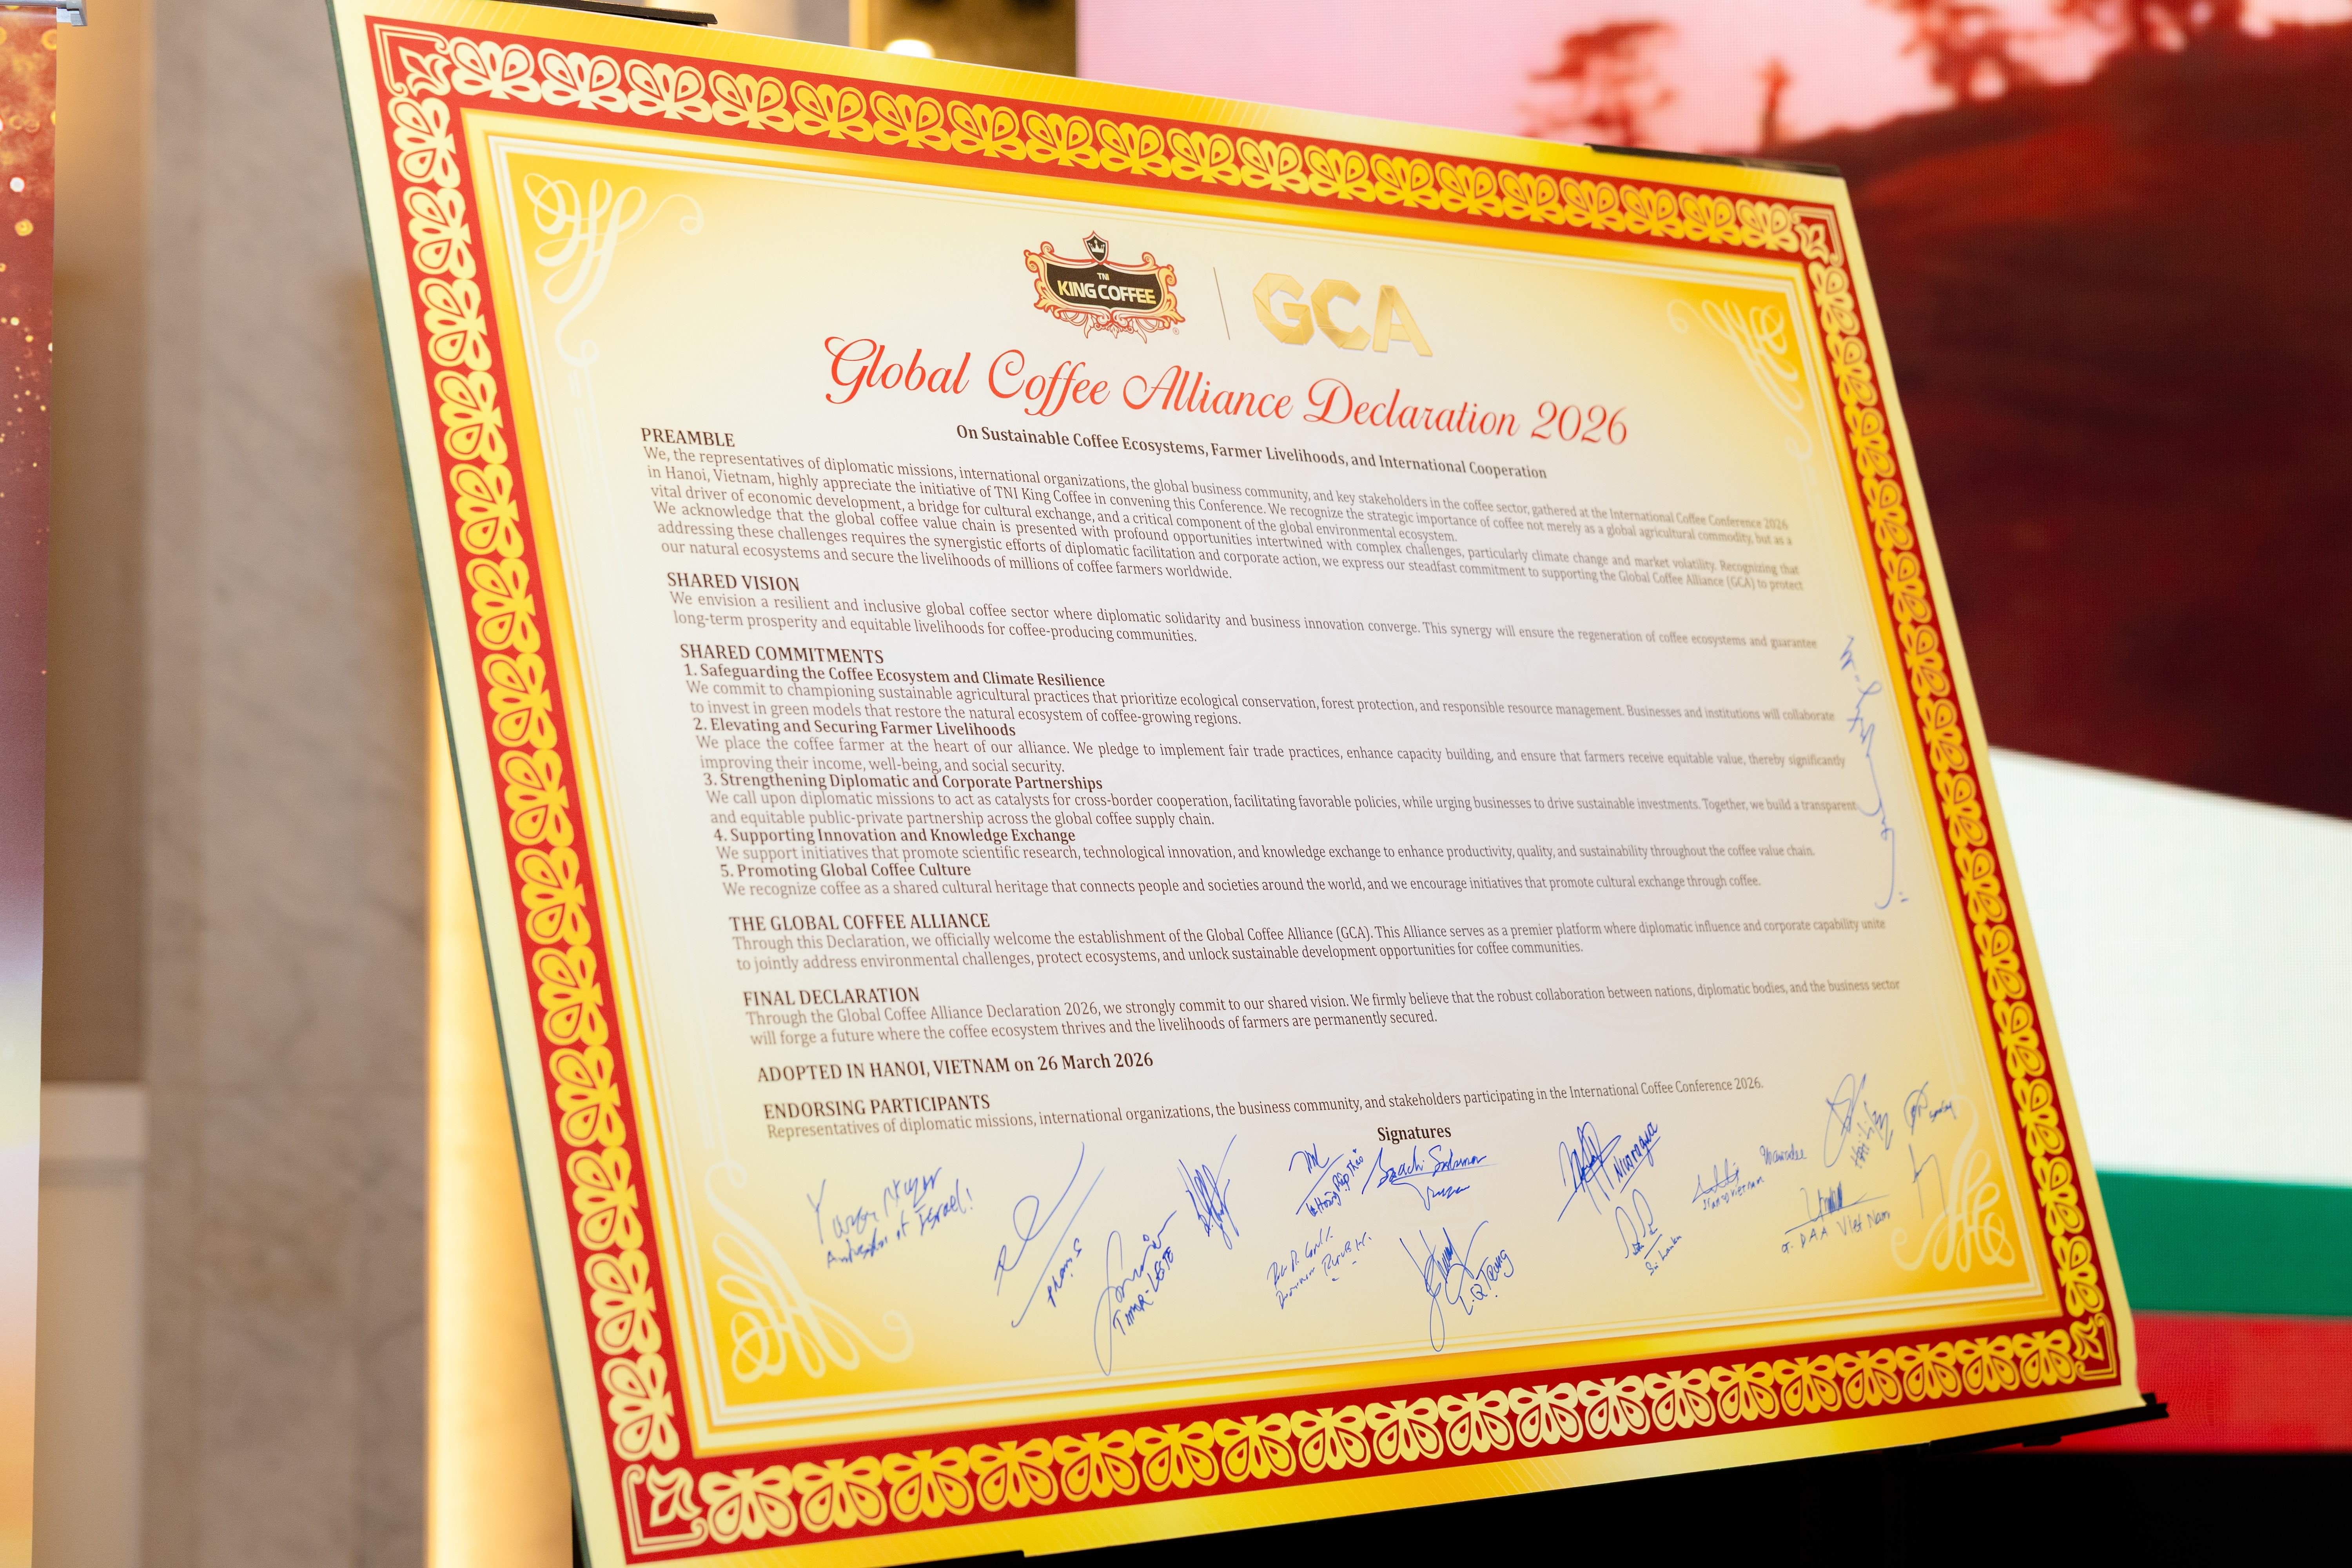 TNI
KING COFFEE
®
GCA
Global Coffee Alliance Declaration 2026
On Sustainable Coffee Ecosystems, Farmer Livelihoods, and International Cooperation
PREAMBLE
We, the representatives of diplomatic missions, international organizations, the global business community, and key stakeholders in the coffee sector, gathered at the International Coffee Conference 2026
in Hanoi, Vietnam, highly appreciate the initiative of TNI King Coffee in convening this Conference. We recognize the strategic importance of coffee not merely as a global agricultural commodity, but as a
vital driver of economic development, a bridge for cultural exchange, and a critical component of the global environmental ecosystem.
We acknowledge that the global coffee value chain is presented with profound opportunities intertwined with complex challenges, particularly climate change and market volatility. Recognizing that
addressing these challenges requires the synergistic efforts of diplomatic facilitation and corporate action, we express our steadfast commitment to supporting the Global Coffee Alliance (GCA) to protect
our natural ecosystems and secure the livelihoods of millions of coffee farmers worldwide.
SHARED VISION
We envision a resilient and inclusive global coffee sector where diplomatic solidarity and business innovation converge. This synergy will ensure the regeneration of coffee ecosystems and guarantee
long-term prosperity and equitable livelihoods for coffee-producing communities.
SHARED COMMITMENTS
1. Safeguarding the Coffee Ecosystem and Climate Resilience
We commit to championing sustainable agricultural practices that prioritize ecological conservation, forest protection, and responsible resource management. Businesses and institutions will collaborate
to invest in green models that restore the natural ecosystem of coffee-growing regions.
2. Elevating and Securing Farmer Livelihoods
We place the coffee farmer at the heart of our alliance. We pledge to implement fair trade practices, enhance capacity building, and ensure that farmers receive equitable value, thereby significantly
improving their income, well-being, and social security.
3. Strengthening Diplomatic and Corporate Partnerships
We call upon diplomatic missions to act as catalysts for cross-border cooperation, facilitating favorable policies, while urging businesses to drive sustainable investments. Together, we build a transparent
and equitable public-private partnership across the global coffee supply chain.
4. Supporting Innovation and Knowledge Exchange
We support initiatives that promote scientific research, technological innovation, and knowledge exchange to enhance productivity, quality, and sustainability throughout the coffee value chain.
5. Promoting Global Coffee Culture
We recognize coffee as a shared cultural heritage that connects people and societies around the world, and we encourage initiatives that promote cultural exchange through coffee.
THE GLOBAL COFFEE ALLIANCE
Through this Declaration, we officially welcome the establishment of the Global Coffee Alliance (GCA). This Alliance serves as a premier platform where diplomatic influence and corporate capability unite
to jointly address environmental challenges, protect ecosystems, and unlock sustainable development opportunities for coffee communities.
FINAL DECLARATION
Through the Global Coffee Alliance Declaration 2026, we strongly commit to our shared vision. We firmly believe that the robust collaboration between nations, diplomatic bodies, and the business sector
will forge a future where the coffee ecosystem thrives and the livelihoods of farmers are permanently secured.
ADOPTED IN HANOI, VIETNAM on 26 March 2026
ENDORSING PARTICIPANTS
Representatives of diplomatic missions, international organizations, the business community, and stakeholders participating in the International Coffee Conference 2026.
Signatures
of Israel!
TIMOR-LESTE
L.Q. Trung
Sri Lanka
DAA Viet Nam